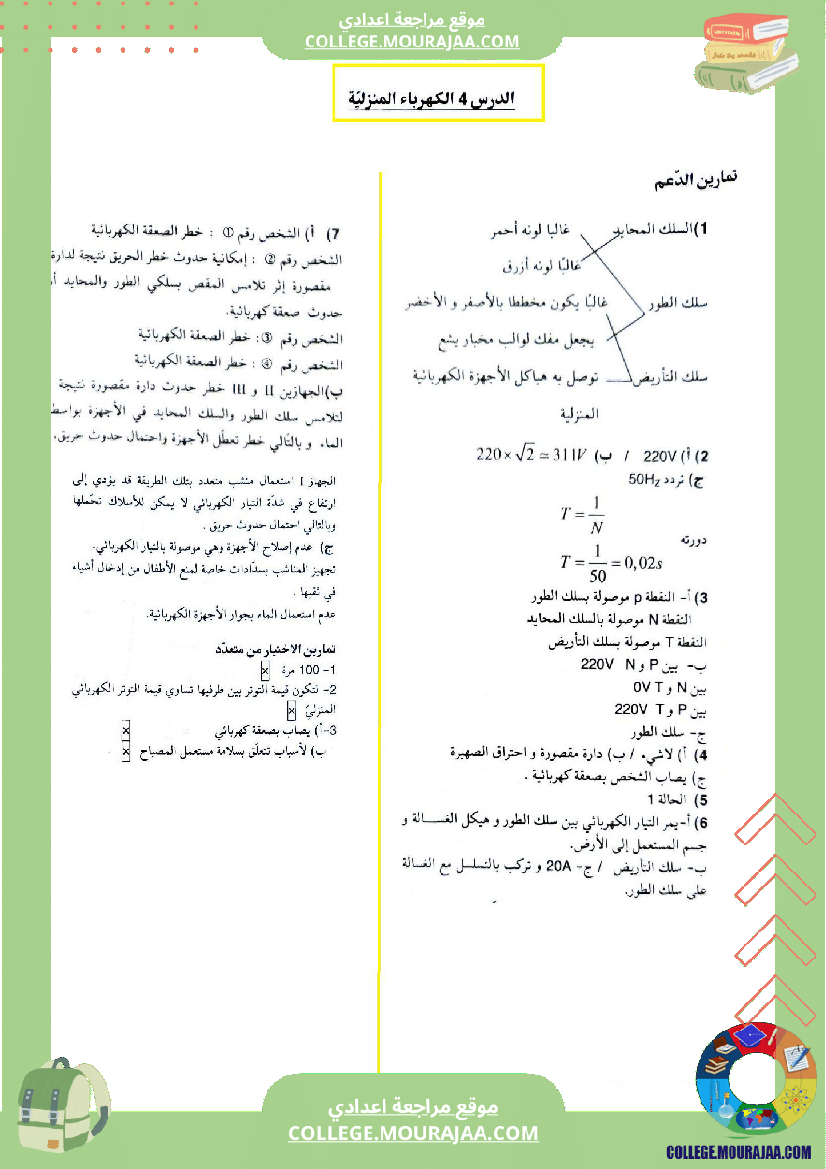 موقع مراجعة اعدادي
COLLEGE.MOURAJAA.COM
الدرس 4 الكهرباء المنزليّة
تمارين الدّعم
1) السلك المحايد غالبا لونه أحمر
غالبًا لونه أزرق
سلك الطور غالبًا يكون مخططا بالأصفر و الأخضر
يجعل مفك لوالب مخبار يشع
سلك التأريض توصل به هياكل الأجهزة الكهربائية
المنزلية
2) أ) 220V / ب) 220 × √2 ≃ 311V
ج) تردد 50Hz
T = 1/N
دورته
T = 1/50 = 0,02s
3) أ- النقطة p موصولة بسلك الطور
النقطة N موصولة بالسلك المحايد
النقطة T موصولة بسلك التأريض
ب- بين P و N 220V
بين N و T 0V
بين P و T 220V
ج- سلك الطور
4) أ) لاشيء / ب) دارة مقصورة و احتراق الصهيرة
ج) يصاب الشخص بصعقة كهربائية .
5) الحالة 1
6) أ- يمر التيار الكهربائي بين سلك الطور و هيكل الغسالة و
جسم المستعمل إلى الأرض.
ب- سلك التأريض / ج- 20A و تركب بالتسلسل مع الغسالة
على سلك الطور.
7) أ) الشخص رقم ① : خطر الصعقة الكهربائية
الشخص رقم ② : إمكانية حدوث خطر الحريق نتيجة لدارة
مقصورة إثر تلامس المقص بسلكي الطور والمحايد أو
حدوث صعقة كهربائية.
الشخص رقم ③: خطر الصعقة الكهربائية
الشخص رقم ④ : خطر الصعقة الكهربائية
ب) الجهازين II و III خطر حدوث دارة مقصورة نتيجة
لتلامس سلك الطور والسلك المحايد في الأجهزة بواسط
الماء و بالتّالي خطر تعطّل الأجهزة واحتمال حدوث حريق.
الجهاز I استعمال منشب متعدد بتلك الطريقة قد يؤدي إلى
ارتفاع في شدّة التيار الكهربائي لا يمكن للأسلاك تحّملها
وبالتالي احتمال حدوث حريق .
ج) عدم إصلاح الأجهزة وهي موصولة بالتيار الكهربائي.
تجهيز المناشب بسدّادات خاصة لمنع الأطفال من إدخال أشياء
في ثقبها .
عدم استعمال الماء بجوار الأجهزة الكهربائية.
تمارين الاختيار من متعدّد
1- 100 مرة x
2- لتكون قيمة التوتر بين طرفيها تساوي قيمة التوتر الكهربائي
المنزليّ x
3-أ) يصاب بصعقة كهربائي x
ب) لأسباب تتعلّق بسلامة مستعمل المصباح x
موقع مراجعة اعدادي
COLLEGE.MOURAJAA.COM
COLLEGE.MOURAJAA.COM